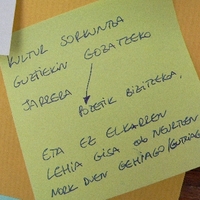 KULTUR SORKUNTZA
GUZTIEKIN GOZATZEKO
JARRERA
POZETIK BIZITZEKOA,
ETA EZ ELKARREN
LEHIA GISA edo NEURTZEN
NORK DUEN GEHIAGO/GUTXIAGO